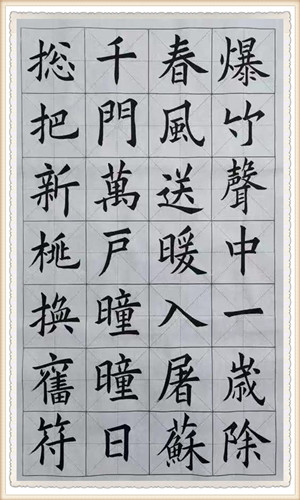 爆竹聲中一歲除
春風送暖入屠蘇
千門萬戶曈曈日
捴把新桃換舊符